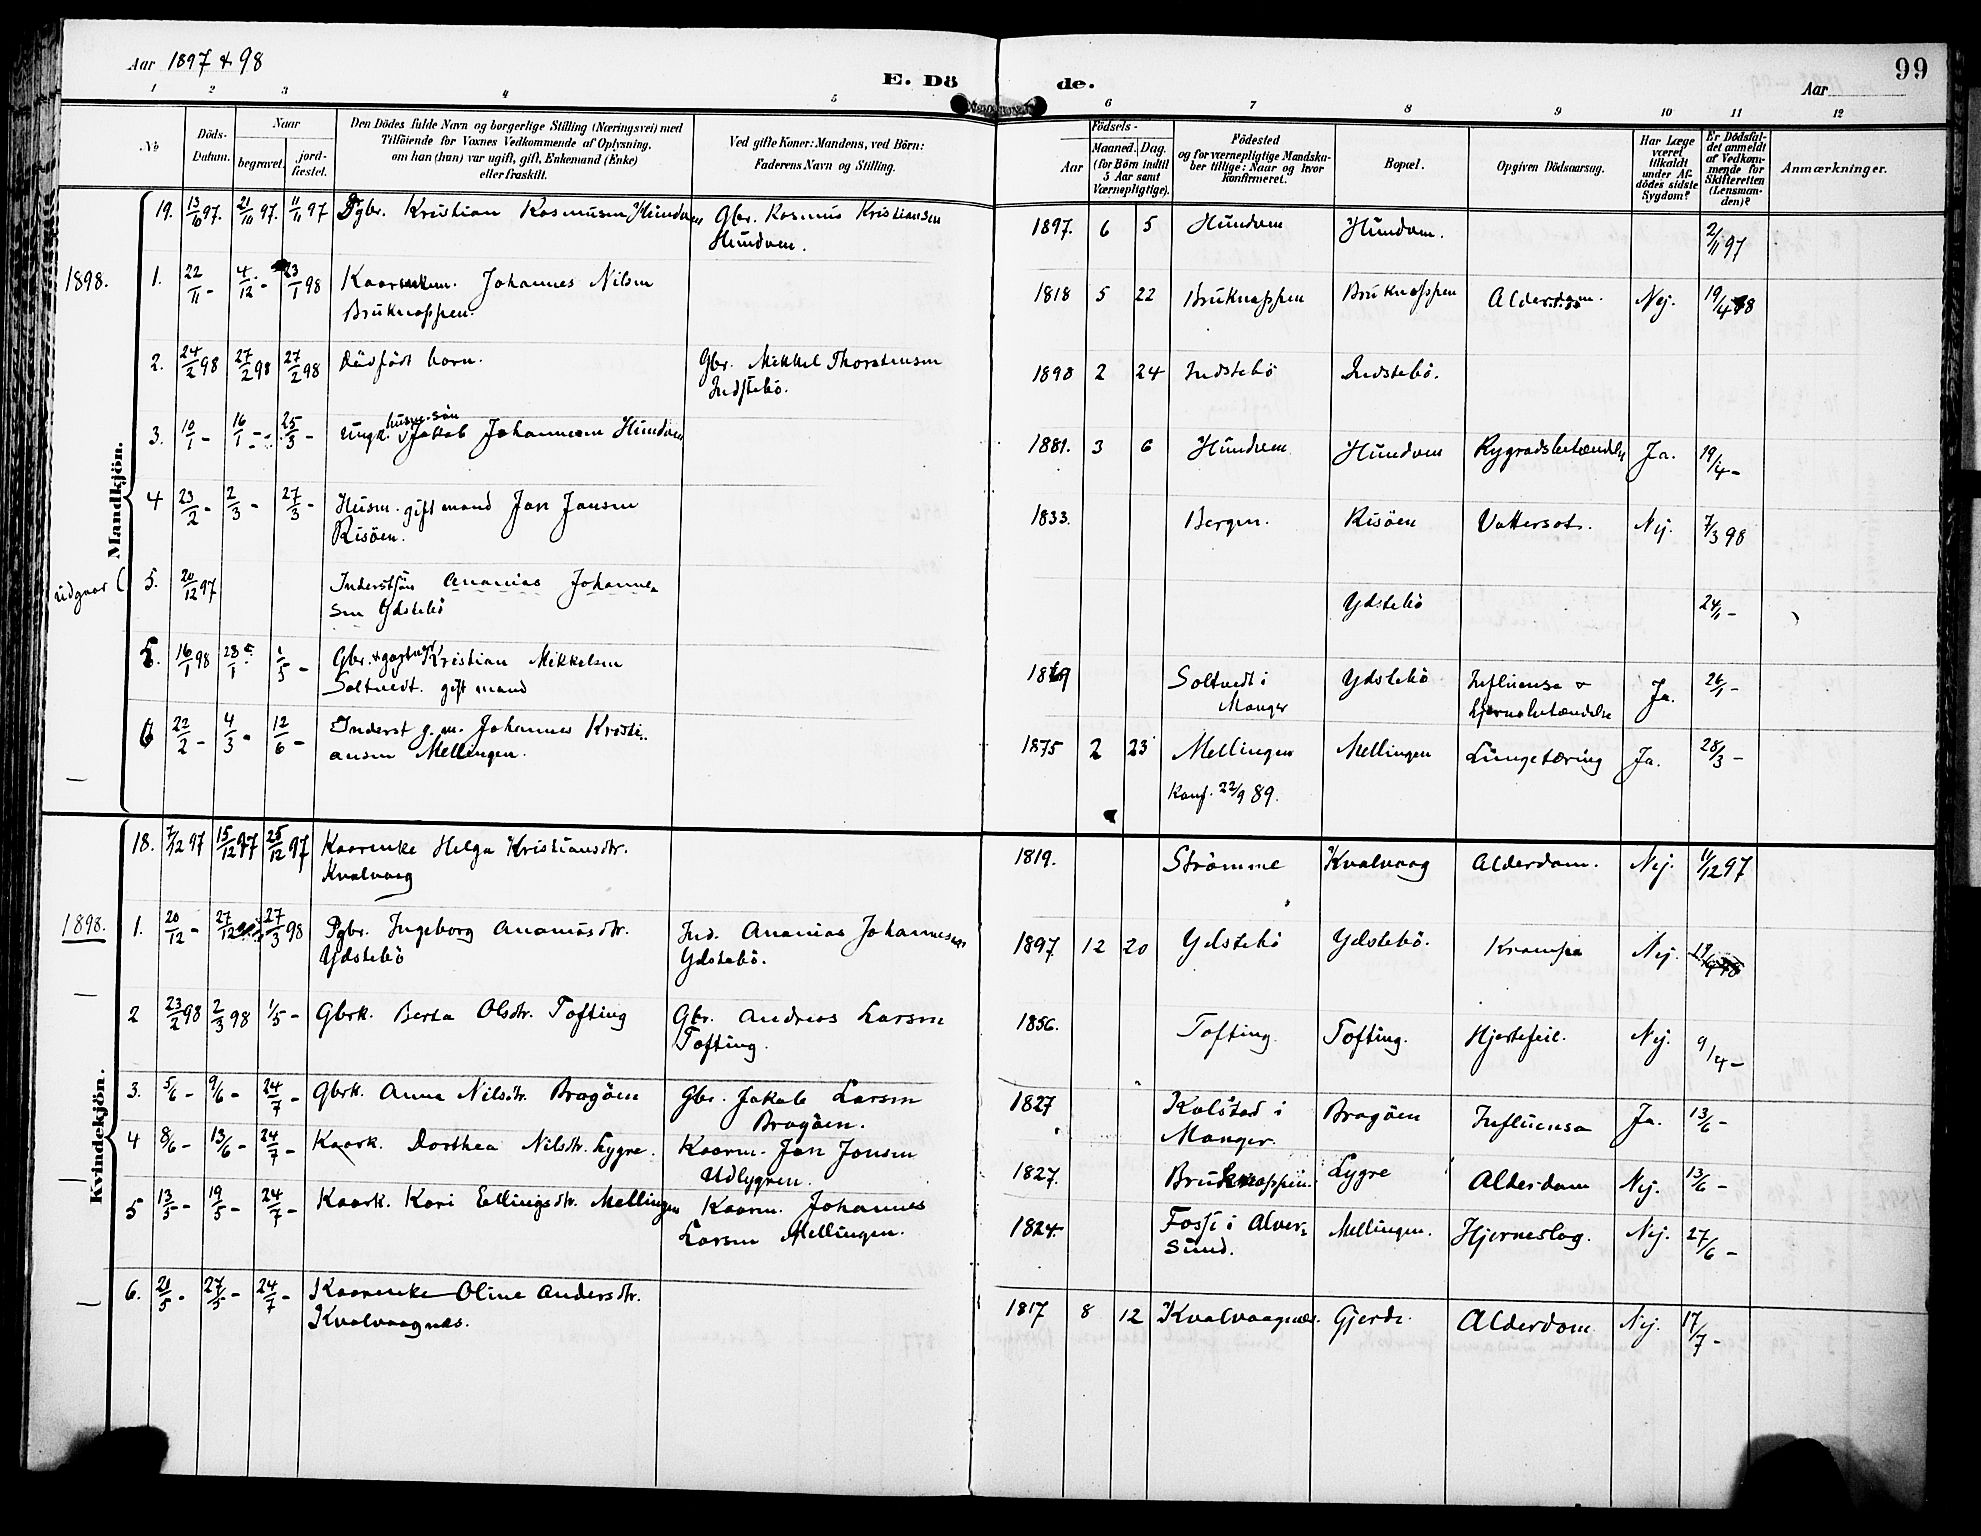 Aar 1897 & 98
E. Dö de.
Aar
99
1 2 3 4 5 6 7 8 9 10 11 12
No
Döds-
Datum.
Naar
begravet.
jord-
fæstet.
Den Dödes fulde Navn og borgerlige Stilling (Næringsvei) med
Tilföiende for Voxnes Vedkommende af Oplysning,
om han (hun) var ugift, gift, Enkemand (Enke)
eller fraskilt.
Ved gifte Koner: Mandens, ved Börn:
Faderens Navn og Stilling.
Födsels-
Aar
Maaned. Dag.
(for Börn indtil
5 Aar samt
Værnepligtige).
Födested
og for værnepligtige Mandska-
ber tillige: Naar og hvor
konfirmeret.
Bopæl.
Opgiven Dödsaarsag.
Har Læge
været
tilkaldt
under Af-
dödes sidste
Sygdom?
Er Dödsfal-
det anmeldt
af Vedkom-
mende for
Skifteretten
(Lensman-
den)?
Anmærkninger.
Mandkjön.
19. 13/10 97. 21/11 97. 11/11 97 Pgbr. Kristian Rasmussen Hundven Gbr. Rasmus Kristiansen 1897. 6 5 Hundven Hundven. 2/11 97
Hundven.
1898. 1. 22/11 - 4/12 - 23/1 98 Kaarenkem. Johannes Nilsen 1818 5 22 Bruknappen Bruknappen Alderdom. Nej. 19/4 98
Bruknappen.
2. 24/2 98 27/2 98 27/2 98 Dödfödt barn. Gbr. Mikkel Thorstensen 1898 2 24 Indstebö Indstebö.
Indstebö.
husm.sön
3. 10/1 - 16/1 - 25/3 - Ungk. Jakob Johannesen Hundven 1881. 3 6 Hundven Hundven Rygradsbetændelse Ja. 19/4 -
4 23/2 - 2/3 - 27/3 - Husm. gift mand Jan Jansen 1833. Bergen. Risöen Vattersot. Nej. 7/3 98
Risöen.
udgaar ( 5. 20/12 97 Inderstsön Ananias Johanne- Ydstebö 24/1 -
sen Ydstebö
5. 16/1 98 23/1 - 1/5 - Gbr. Kristian Mikkelsen 1869 Soltvedt i Ydstebö Influensa & Ja. 26/1 -
Soltvedt. gift mand Manger hjernebetændelse
6 22/2 - 4/3 - 12/6 - Inderst g.m. Johannes Kristi- 1875 2 23 Mellingen Mellingen Lungetæring Ja. 28/3 -
ansen Mellingen. Konf. 22/9 89.
Kvindekjön.
18. 7/12 97 15/12 97 25/12 97 Kaarenke Helga Kristiansdtr. 1819. Strömme Kvalvaag Alderdom. Nej. 11/12 97
Kvalvaag
1898. 1. 20/12 - 27/12 27/3 98 Pgbr. Ingeborg Ananiasdtr. Ind. Ananias Johannesen 1897 12 20 Ydstebö Ydstebö. Krampe Nej.
Ydstebö Ydstebö.
2 23/2 98 2/3 98 1/5 - Gbrk. Berta Olsdtr. Tofting Gbr. Andreas Larsen 1856. Tofting. Tofting. Hjertefeil. Nej. 9/4 -
Tofting.
3. 5/6 - 9/6 - 24/7 - Gbrk. Anna Nilsdtr. Bragöen Gbr. Jakob Larsen 1827 Kolstad i Bragöen Influensa Ja. 13/6 -
Bragöen. Manger.
4 8/6 - 13/6 - 24/7 - Kaark. Dorthea Nilsdtr. Lygre. Kaarm. Jan Jonsen 1827. Bruknappen. Lygre Alderdom Nej. 13/6 -
Udlygren.
5 13/5 - 19/5 - 24/7 - Kaark. Kari Ellingsdtr. Mellingen Kaarm. Johannes 1824. Fosse i Alver- Mellingen. Hjerneslag. Nej. 27/6 -
Larsen Mellingen. sund.
6. 20/5 - 27/5 - 24/7 - Kaarenke Oline Andersdtr. 1817 8 12 Kvalvaagnæs. Gjerde. Alderdom Nej. 17/7 -
Kvalvaagnæs.